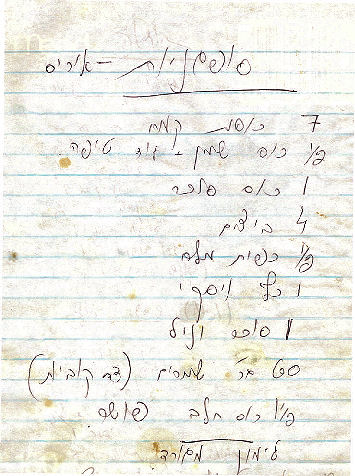 סופגניות – אוריס
7 כוסות קמח
כוס שמן - עוד טיפה
1 כוס סוכר
4 ביצים
כפית מלח
1 כף ויסקי
1 סוכר וניל
50 גר' שמרים (צד קוביות)
כוס חלב פושר
לימון מגורד